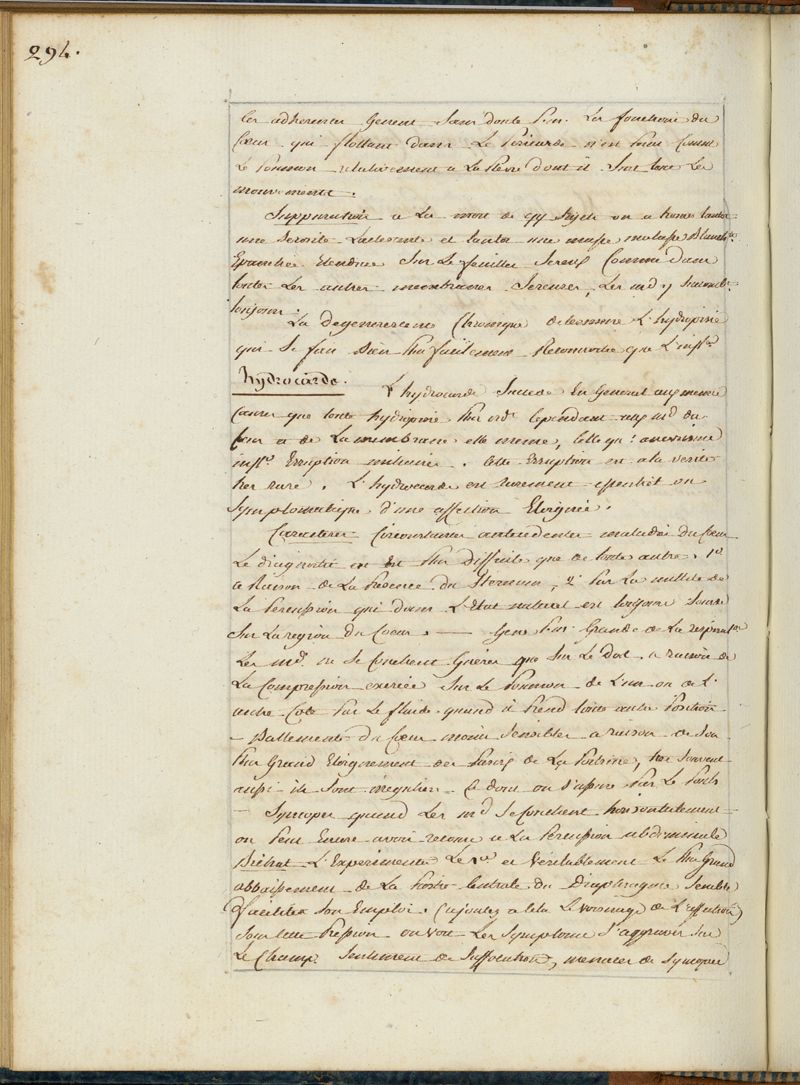 294.
Les adherences Genent sans doute P.m. Les fonctions du
Cœur qui flottant dans Le Pericarde n'est Point Comme
Le Poumon relativement a La Plevre dont il suit tous Les
mouvements.
Suppuration a La mort de qq Sujets on a trouvé tantot
une Serosité Lactescente et tantot une masse molasse Blanch.
Epanchée Etendue Sur Le feuillet Sereux Comme dans
toutes Les autres membranes Sereuses, Les md y
toujours.
La degenerescence Chronique determine L'hydropisie
qui Se fait Bien Plus facilement Reconnoitre que L'infl.on
hydrocarde. L'hydrocarde Succede En General aux memes
Causes que toute hydropisie Plus ord. Cependant aux md du
Cœur et de La membrane elle meme, telle qu: anevrisme
infl.on Eruption miliaire. Cette Eruption est a la verité
tres rare. L'hydrocarde est rarement essentiel ou
Symptomatique d'une affection Eloignée.
Caracteres Circonstances antecedentes maladies du Cœur
Le diagnostic en Est Plus Difficile que de toute autre. 1°
a Raison de La Presence du Sternum, 2° Par La nullité de
La Percussion qui dans L'Etat naturel est toujours Sourde
Sur La region du Coeur. — Gene P.m. Grande de La respirat.on
Les md. ne Se Couchent Gueres que Sur Le Dos a raison de
La Compression exercée Sur Le Poumon de L'un ou de L'
autre Coté Par Le fluide quand il Prend toute autre Position
— Battements du Cœur moins Sensibles a raison de Son
Plus Grand Eloignement des Parois de La Poitrine, tres Souvent
aussi ils Sont irreguliers Ce dont on s'assure Par Le Pouls
— Syncopes quand Les md Se Couchent horisontalement —
on Peut Encore avoir recours a La Percussion abdominale
Bichat L'Experimenta Le 1.er et Veritablement Le Plus Grand
abbaissement de La Partie Centrale du Diaphragme Semble
faciliter Son Emploi. (ajoutez a cela Le voisinage de L'affection)
Sous cette Pression on voit Les Symptomes S'aggraver Sur
Le Champ. Sentiment de Suffocation, menaces de Syncopes